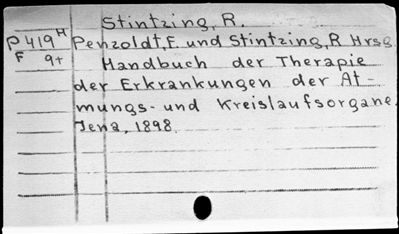 Stintzing, R.
P419M Penzoldt, F. und Stintzing, R Hrsg.
F 9+ Handbuch der Therapie
der Erkrankungen der At-
mungs- und Kreislaufsorgane.
Jena, 1898.